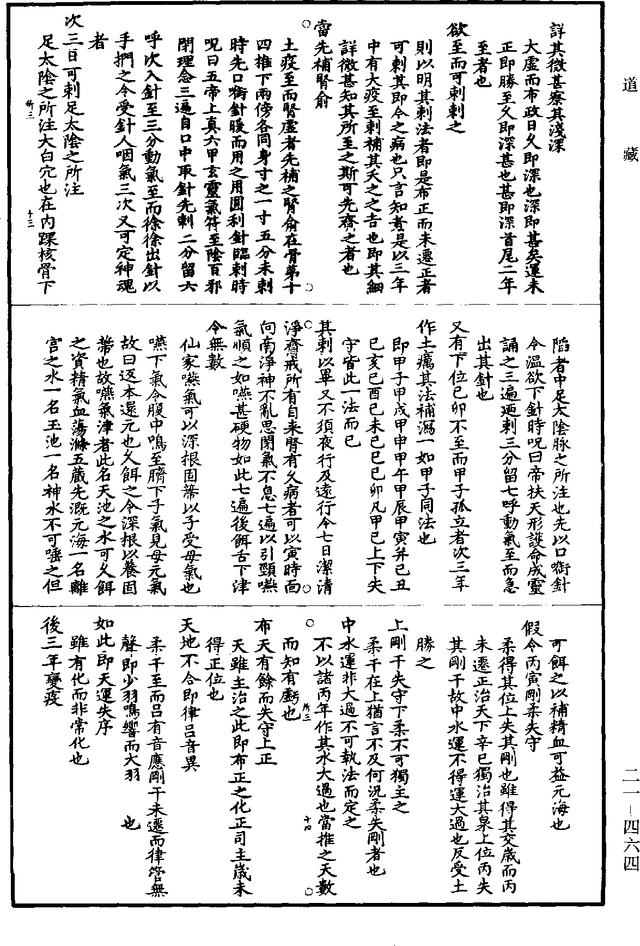 道藏
詳其微甚察其淺深
大虛而布政日久即深也深即甚矣運未
正即勝至久即深甚也甚即深首尾二年
至者也
欲至而可刺刺之
則以明其刺法者即是布正而未遷正者
可刺其即令之病也只言知者是以三年
中有大疫至刺補其天之之吉也即其細
詳微甚知其所至之斯可先齊之者也
當先補腎俞
土疫至而腎虛者先補之腎俞在骨第十
四推下兩傍各同身寸之一寸五分未刺
時先口銜針暖而用之用圓利針臨刺時
呪曰五帝上真六甲玄靈氣符至陰百邪
閉理念三遍自口中取針先刺二分留六
呼次入針至三分動氣至而徐徐出針以
手捫之令受針人咽氣三次又可定神魂
者
次三日可刺足太陰之所注
足太陰之所注大白穴也在內踝核骨下
所三
十三
陷者中足太陰脉之所注也先以口銜針
令溫欲下針時呪曰帝扶天形護命成靈
誦之三遍廼刺三分留七呼動氣至而急
出其針也
又有下位己卯不至而甲子孤立者次三年
作土癘其法補瀉一如甲子同法也
即甲子甲戌甲申甲午甲辰甲寅并己丑
己亥己酉己未己巳己卯凡甲己上下失
守皆此一法而已
其刺以畢又不須夜行及遠行令七日潔清
淨齋戒所有自来腎有久病者可以寅時面
向南淨神不亂思閉氣不息七遍以引頸嚥
氣順之如嚥甚硬物如此七遍後餌舌下津
令無數
仙家嚥氣可以深根固蔕以子受母氣也
嚥下氣令腹中鳴至臍下子氣見母元氣
故曰返本還元也久餌之令深根以養固
蔕也故嚥氣津者此名天池之水可久餌
之資精氣血蕩滌五藏先溉元海一名離
宮之水一名玉池一名神水不可唾之但
可餌之以補精血可益元海也
假令丙寅剛柔失守
柔得其位上失其剛也雖得其交歲而丙
未遷正治天下辛巳獨治其泉上位丙失
其剛干故中水運不得運大過也反受土
勝之
上剛干失守下柔不可獨主之
柔干在上猶言不及何況柔失剛者也
中水運非大過不可執法而定之
不以諸丙年作其水大過也當推之天數
而知有虧也
所三
十四
布天有餘而失守上正
天雖主治之此即布正之化正司主歲未
得正位也
天地不合即律吕音異
柔干至而吕有音應剛干未遷而律管無
聲即少羽鳴響而大羽　也
如此即天運失序
雖有化而非常化也
後三年變疫
二一—四六四